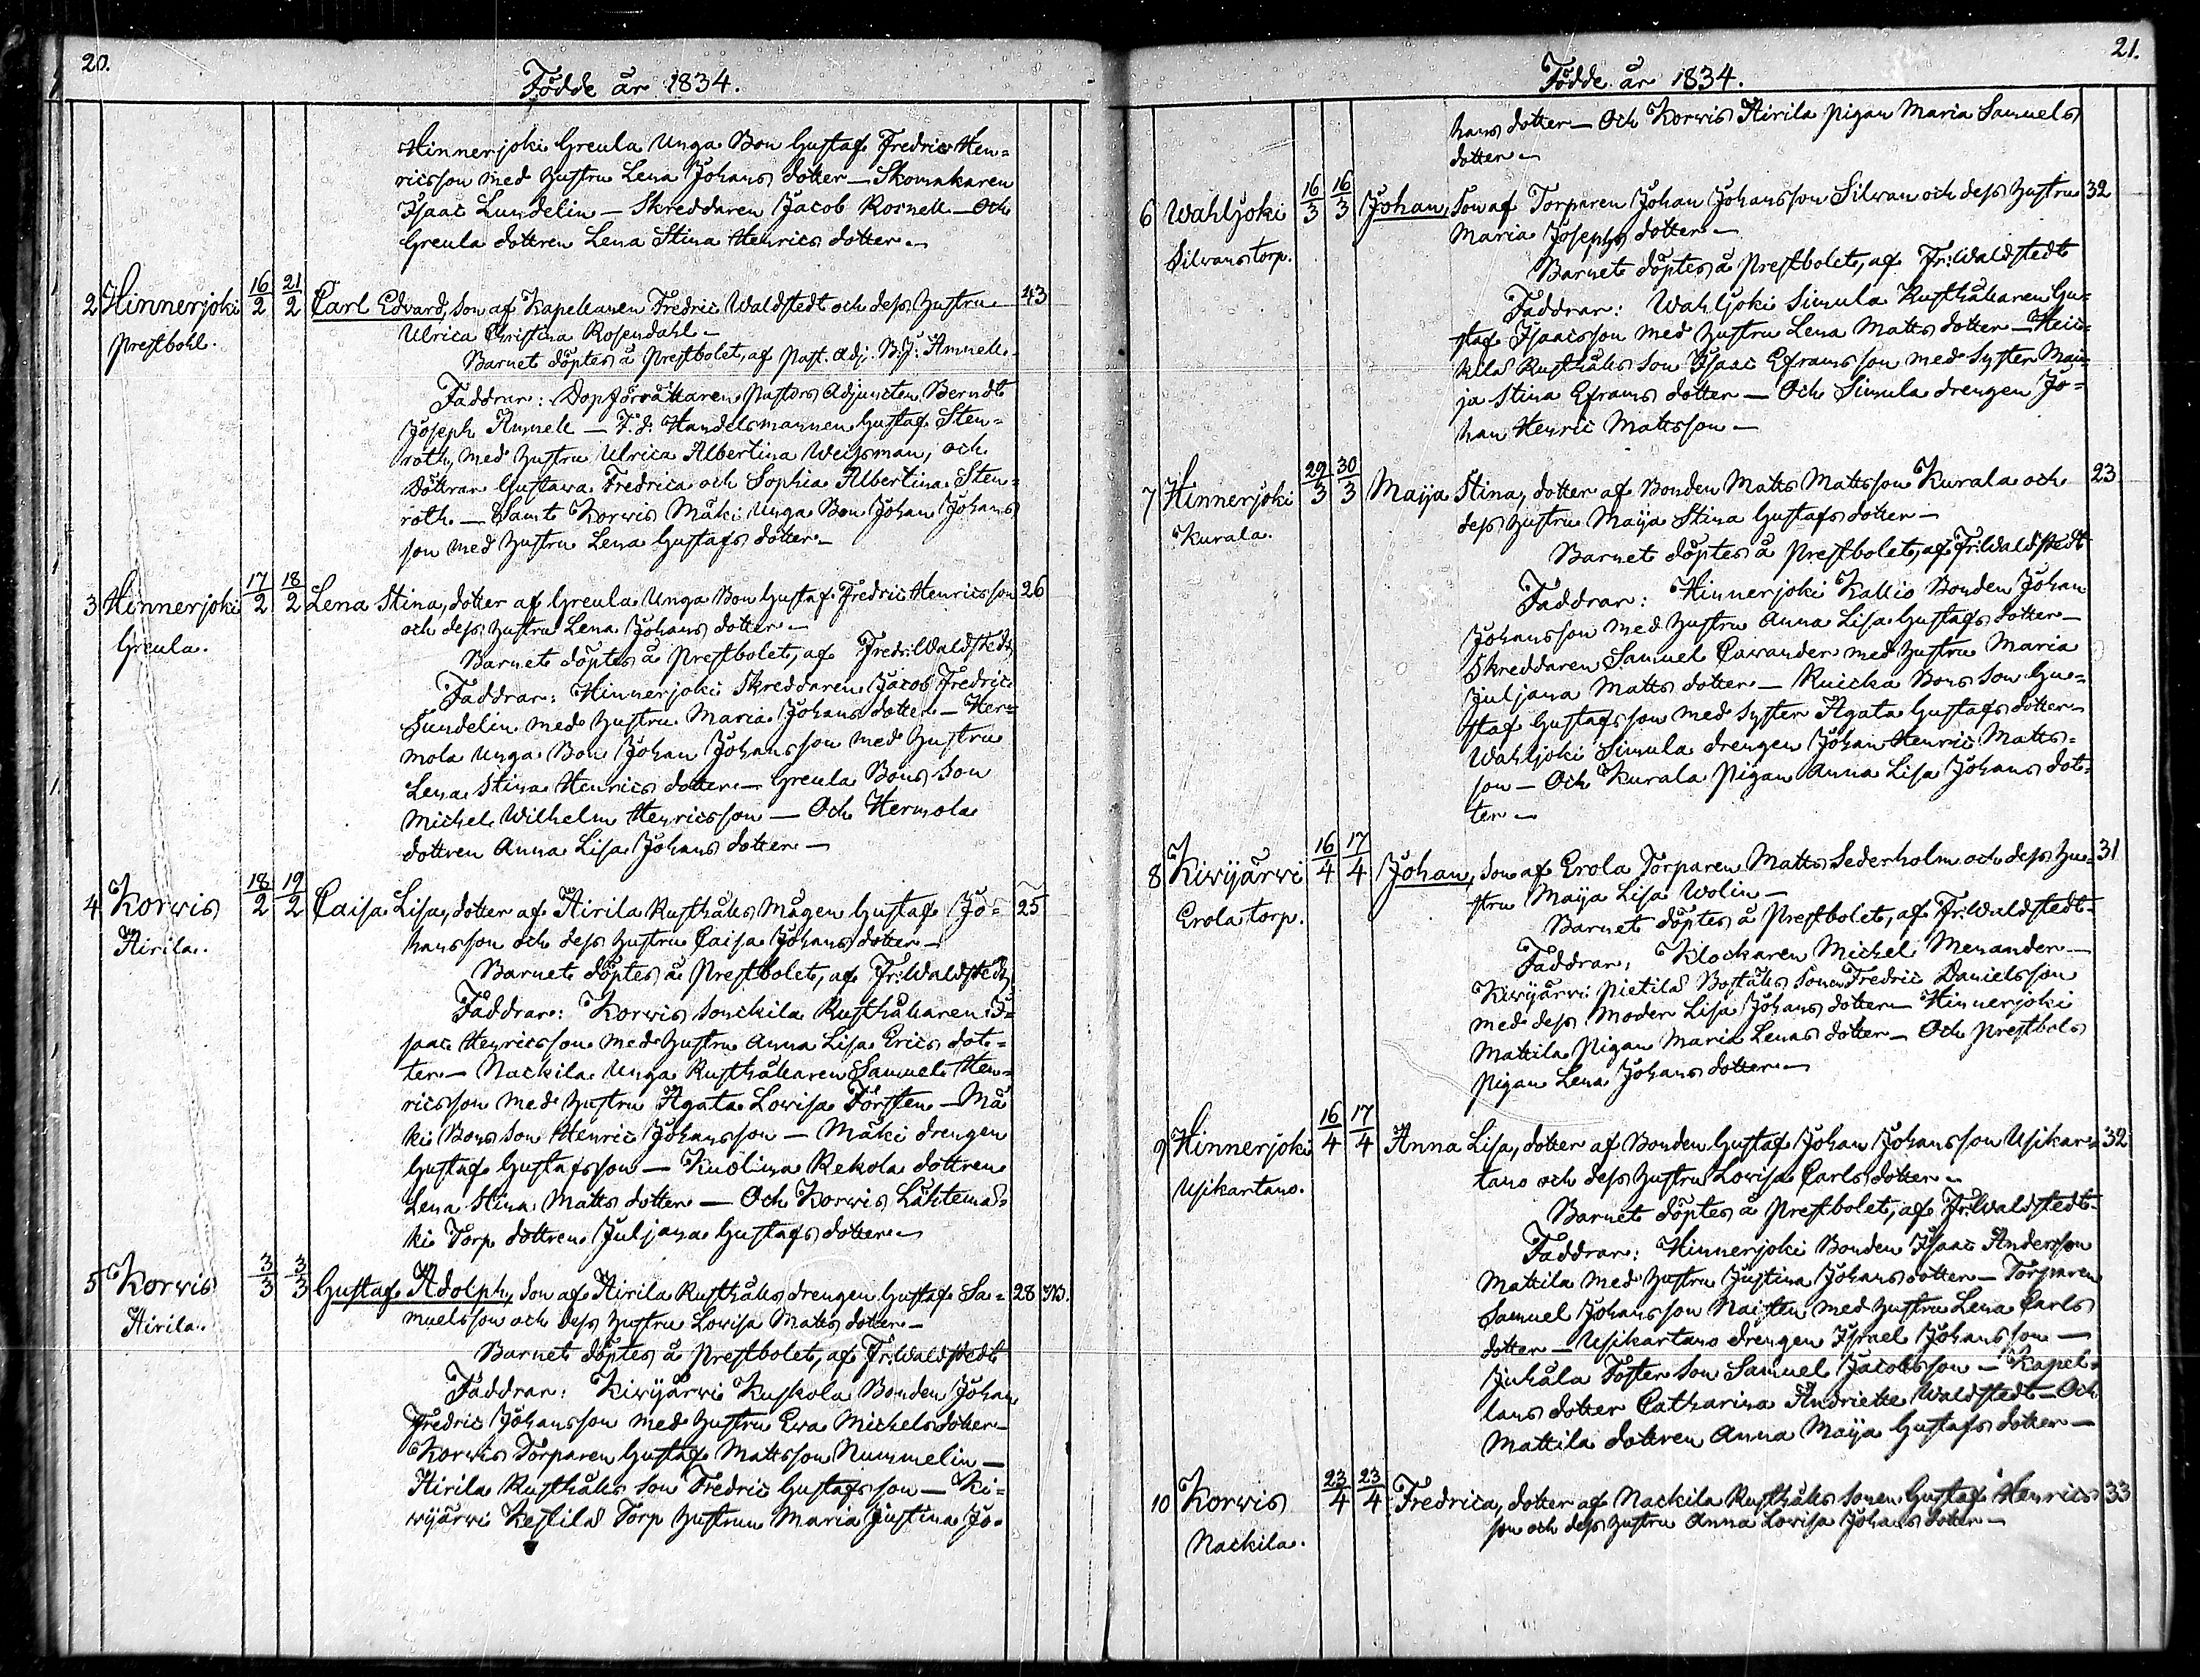 20.
Födde år 1834.
Hinnerjoki Greula Unga Bon Gustaf Fredric Hen=
ricsson med hustru Lena Johans dotter – Skomakaren
Isaac Lundelin – Skreddaren Jacob Rosnell – Och
Greula dottren Lena Stina Henrics dotter –
2 Hinnerjoki 16/2 21/2 Carl Edvard, Son af Kapellanen Fredric Waldstedt och dess hustru 43
prestbohl. Ulrica Christina Rosendahl –
Barnet döptes å Prestbolet, af Past. Adj. B. J. Amnell
Faddrar: Dopförrättaren Pastors Adjuncten Berndt
Joseph Amnell – F. d. Handelsmannen Gustaf Sten=
roth, med hustru Ulrica Albertina Weisman, och
Döttrar Gustava Fredrica och Sophia Albertina Sten=
roth – Samt Korwis Mäki Unga Bon Johan Johans
son med hustru Lena Gustafs dotter –
3 Hinnerjoki 17/2 18/2 Lena Stina, dotter af Greula Unga Bon Gustaf Fredric Henricsson 26
Greula. och dess hustru Lena Johans dotter –
Barnet döptes å Prestbolet, af Fredr: Waldstedt
Faddrar: Hinnerjoki Skreddaren Jacob Fredric
Sundelin med hustru Maria Johans dotter – Her=
mola Unga Bon Johan Johansson med hustru
Lena Stina Henrics dotter – Greula Bons Son
Michel Wilhelm Henricsson – Och Hermola
dottren Anna Lisa Johans dotter –
4 Korwis 18/2 19/2 Caisa Lisa, dotter af Airila Rusthålls Mågen Gustaf Jo= 25
Airila. hansson och dess hustru Caisa Johans dotter –
Barnet döptes å Prestbolet, af Fr: Waldstedt
Faddrar: Korwis Sonckila Rusthållaren I=
saac Henricsson med hustru Anna Lisa Erics dot=
ter – Nackila Unga Rusthållaren Samuel Hen=
ricsson med hustru Agata Lowisa Törsten – Mä
ki Bons Son Henric Johansson – Mäki drengen
Gustaf Gustafsson – Kuolima Rekola dottren
Lena Stina Matts dotter – Och Korwis Lähtemä=
ki Torp dottren Juljana Gustafs dotter –
5 Korwis 3/3 3/3 Gustaf Adolph, Son af Airila Rusthålls drengen Gustaf Sa= 28
Airila. muelsson och dess hustru Lowisa Matts dotter –
Barnet döptes å Prestbolet, af Fr: Waldstedt
Faddrar: Kiwijärwi Kuskola Bonden Johan
Fredric Johansson med hustru Ewa Michels dotter –
Korwis Torparen Gustaf Mattsson Nummelin –
Airila Rusthålls Son Fredric Gustafsson – Ki=
wijärwi Kestilä Torp hustrun Maria Justina Jo=
21.
Födde år 1834.
hans dotter – Och Korwis Airila pigan Maria Samuels
dotter –
6 Wahljoki 16/3 16/3 Johan, Son af Torparen Johan Johansson Silwan och dess hustru 32
Silwans torp. Maria Josephs dotter –
Barnet döptes å Prestbolet, af Fr: Waldstedt
Faddrar: Wahljoki Simula Rusthållaren Gu=
staf Isaacsson med hustru Lena Matts dotter – Heic=
kilä Rusthålls Son Isaac Eframsson med Syster Mai=
ja Stina Eframs dotter – Och Simula drengen Jo=
han Henric Mattsson –
7 Hinnerjoki 29/3 30/3 Maija Stina, dotter af Bonden Matts Mattsson Kurala och 23
Kurala. dess hustru Maija Stina Gustafs dotter –
Barnet döptes å Prestbolet, af Fr: Waldstedt
Faddrar: Hinnerjoki Kallio Bonden Johan
Johansson med hustru Anna Lisa Gustafs dotter –
Skreddaren Samuel Cawander med hustru Maria
Juljana Matts dotter – Knicka Bons Son Gu=
staf Gustafsson med Syster Agata Gustafs dotter –
Wahljoki Simula drengen Johan Henric Matts=
son – Och Kurala pigan Anna Lisa Johans dot=
ter –
8 Kiwijärwi 16/4 17/4 Johan, Son af Erola Torparen Matts Sederholm och dess hu= 31
Erola torp. stru Maija Lisa Wolin –
Barnet döptes å Prestbolet, af Fr: Waldstedt
Faddrar: Klockaren Michel Menander –
Kiwijärwi Pietilä Boställs Sonen Fredric Danielsson
med dess Moder Lisa Johans dotter – Hinnerjoki
Mattila pigan Maria Lenas dotter – Och prestbols
pigan Lena Johans dotter –
9 Hinnerjoki 16/4 17/4 Anna Lisa, dotter af Bonden Gustaf Johan Johansson Usikar= 32
Usikartano. tano och dess hustru Lowisa Carls dotter –
Barnet döptes å Prestbolet, af Fr: Waldstedt
Faddrar: Hinnerjoki Bonden Isaac Andersson
Mattila med hustru Justina Johans dotter – Torparen
Samuel Johansson Naisten med hustru Lena Carls
dotter – Usikartano drengen Israel Johansson –
Juhala Foster Son Samuel Jacobsson – Kapel=
lans dotter Catharina Andriette Waldstedt – Och
Mattila dottren Anna Maija Gustafs dotter –
10 Korwis 23/4 23/4 Fredrica, dotter af Nackila Rusthålls Sonen Gustaf Henrics 33
Nackila. son och dess hustru Anna Lowisa Johans dotter –